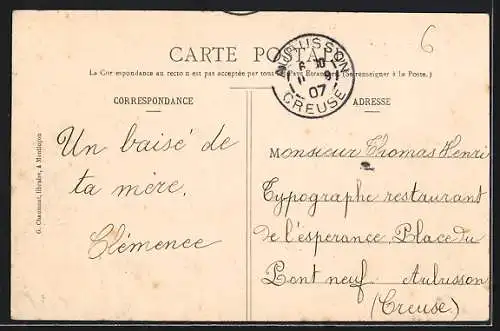 CARTE POSTALE
La Correspondance au recto n'est pas acceptée par tous Pays Etrangers (Se renseigner à la Poste.)
CORRESPONDANCE
ADRESSE
AUBUSSON
CREUSE
07
6
G. Chaumont, libraire, à Montluçon
Un baisé de
ta mère.
Clémence
Monsieur Thomas Henri
Typographe restaurant
de l'esperance. Place du
Pont neuf Aubusson
(Creuse)